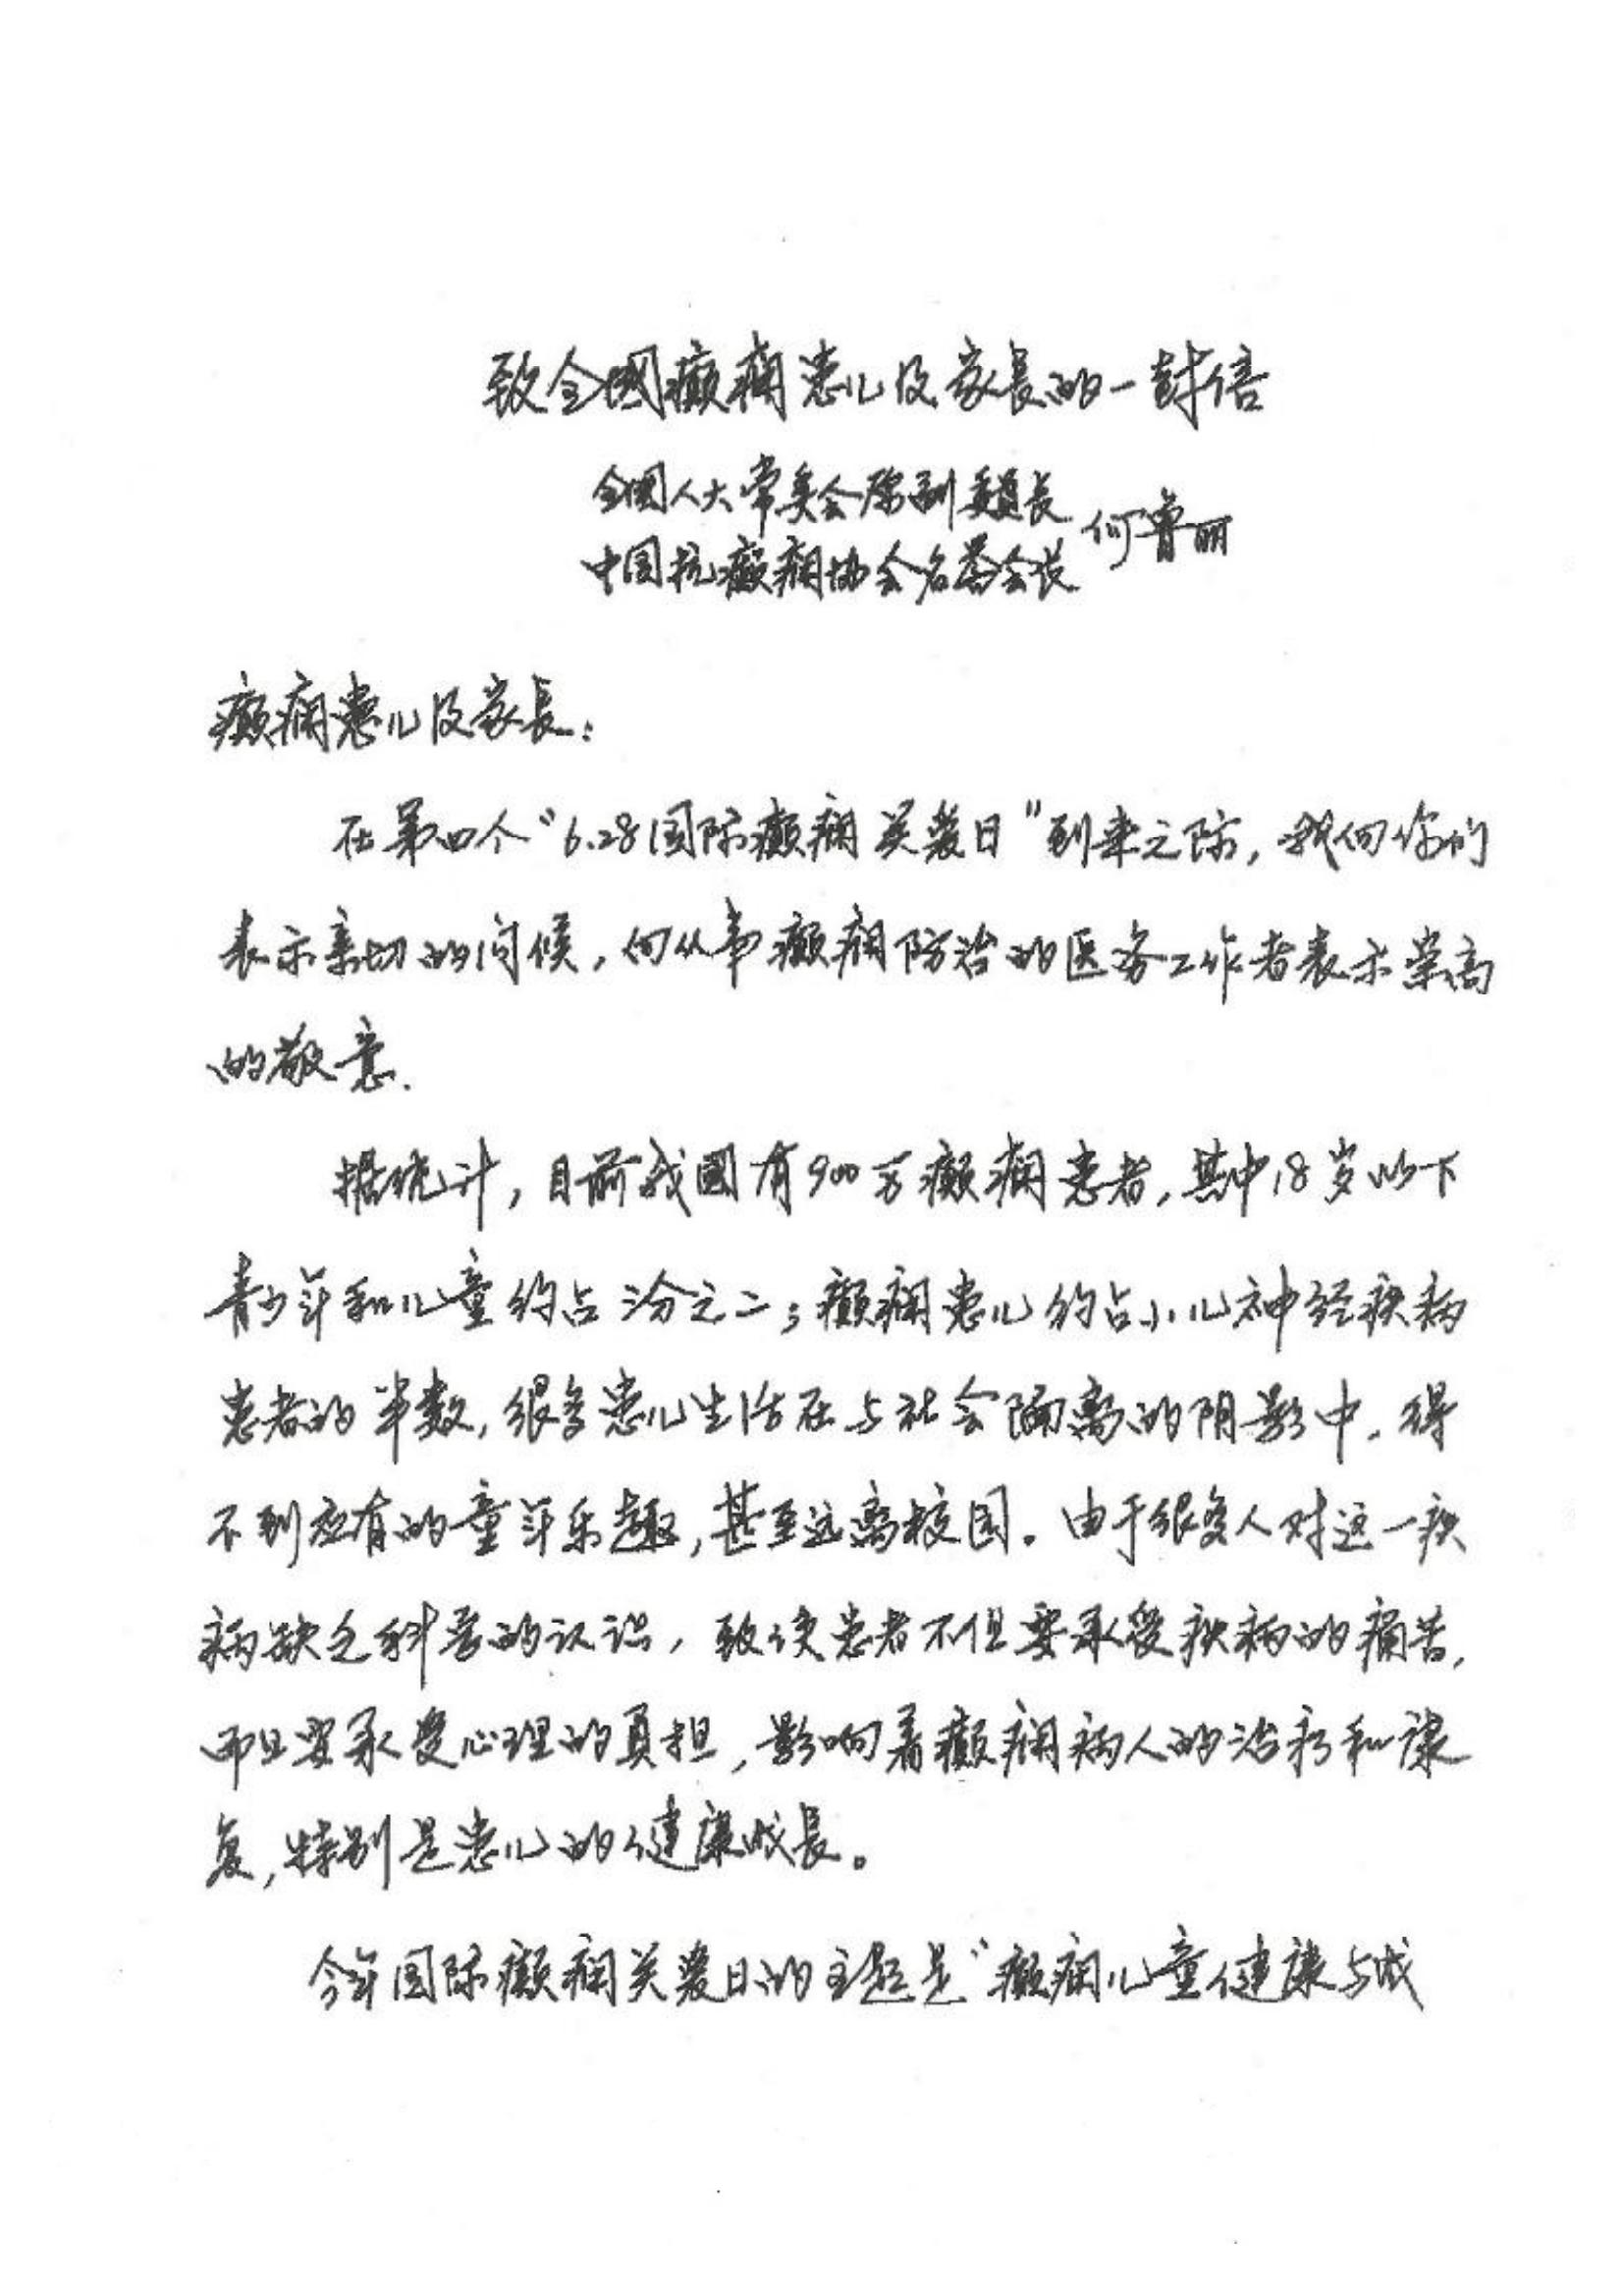 致全國癲痫患儿及家長的一封信
全國人大常委会原副委員長
何鲁丽
中国抗癫痫协会名誉会长
癫痫患儿及家長：
在第四个“6.28国际癫痫关爱日”到来之际，我向你们
表示亲切的问候，向从事癫痫防治的医务工作者表示崇高
的敬意.
据统计，目前我國有900万癫痫患者，其中18岁以下
青少年和儿童约占三分之二；癫痫患儿约占小儿神经疾病
患者的半数，很多患儿生活在与社会隔离的阴影中，得
不到应有的童年乐趣，甚至远离校园。由于很多人对这一疾
病缺乏科学的认识，致使患者不但要承受疾病的痛苦，
而且要承受心理的負担，影响着癫痫病人的治疗和康
复，特别是患儿的健康成長。
今年国际癫痫关爱日的主题是“癫痫儿童健康与成